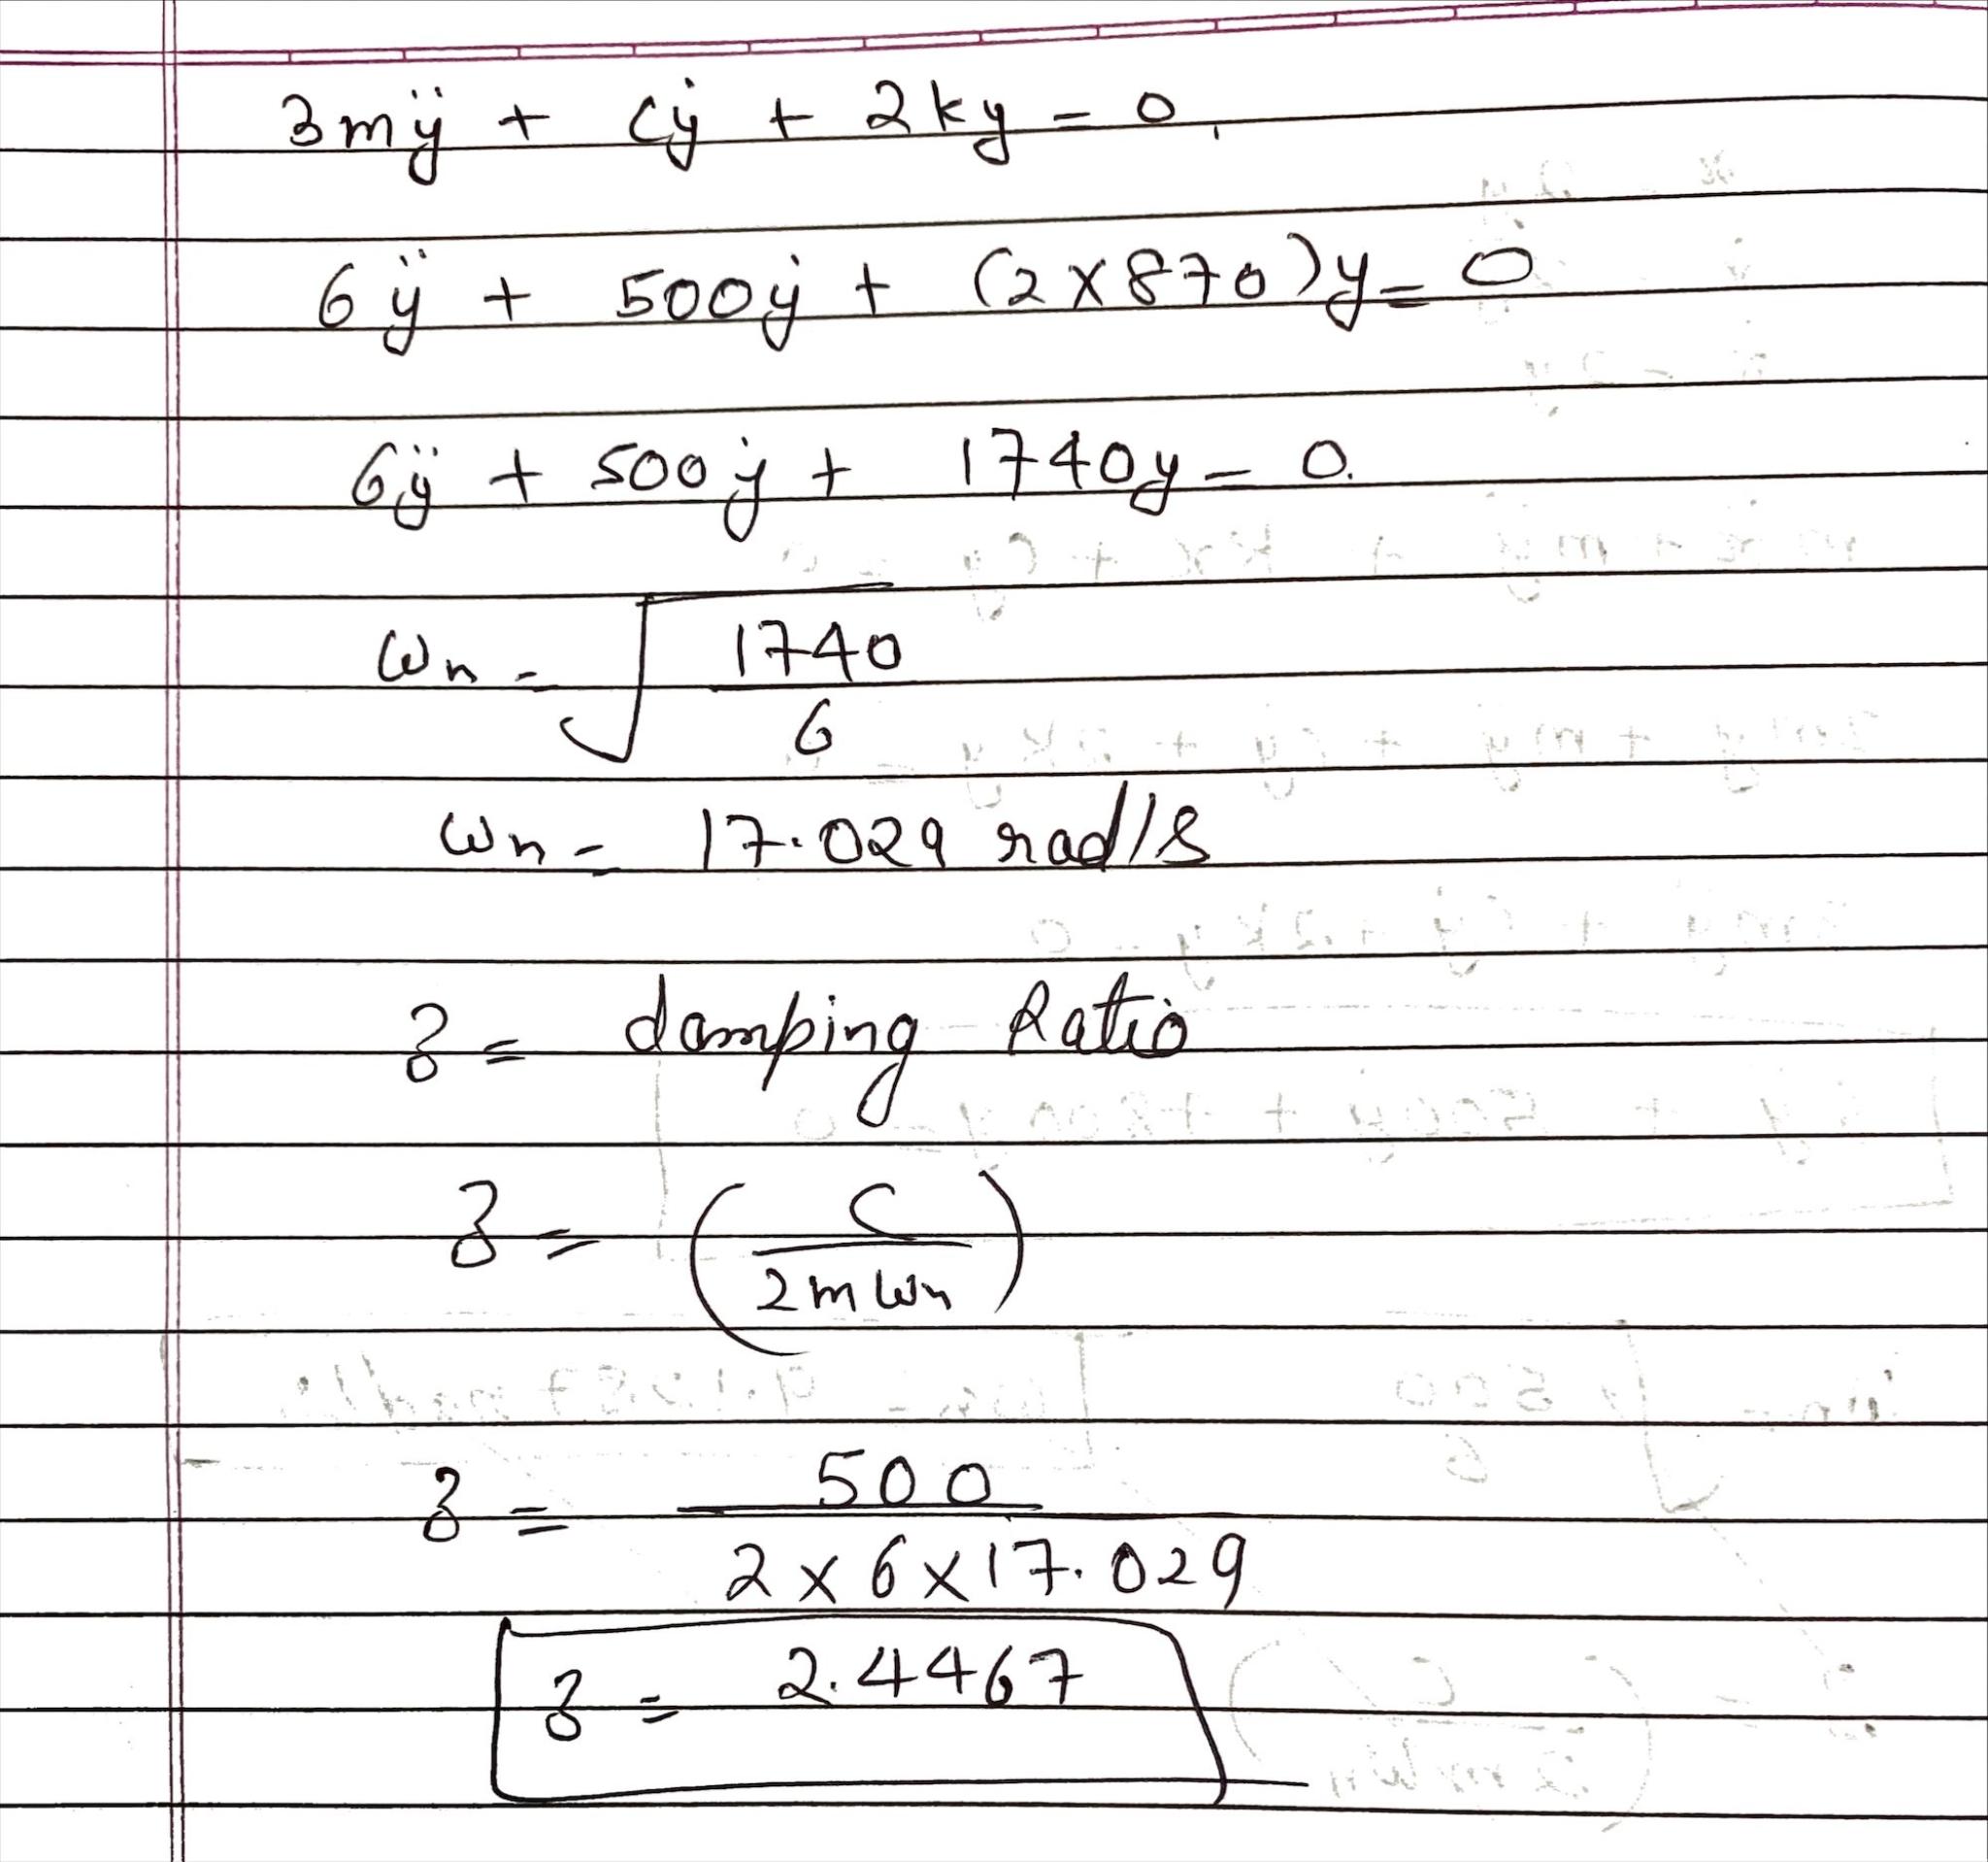 3mÿ + cẏ + 2ky = 0.
6ÿ + 500ẏ + (2×870)y = 0
6ÿ + 500ẏ + 1740y = 0.
ωn = √(1740/6)
ωn = 17.029 rad/s
ȝ = damping Ratio
ȝ = (C/2mωn)
ȝ = 500/(2×6×17.029)
ȝ = 2.4467